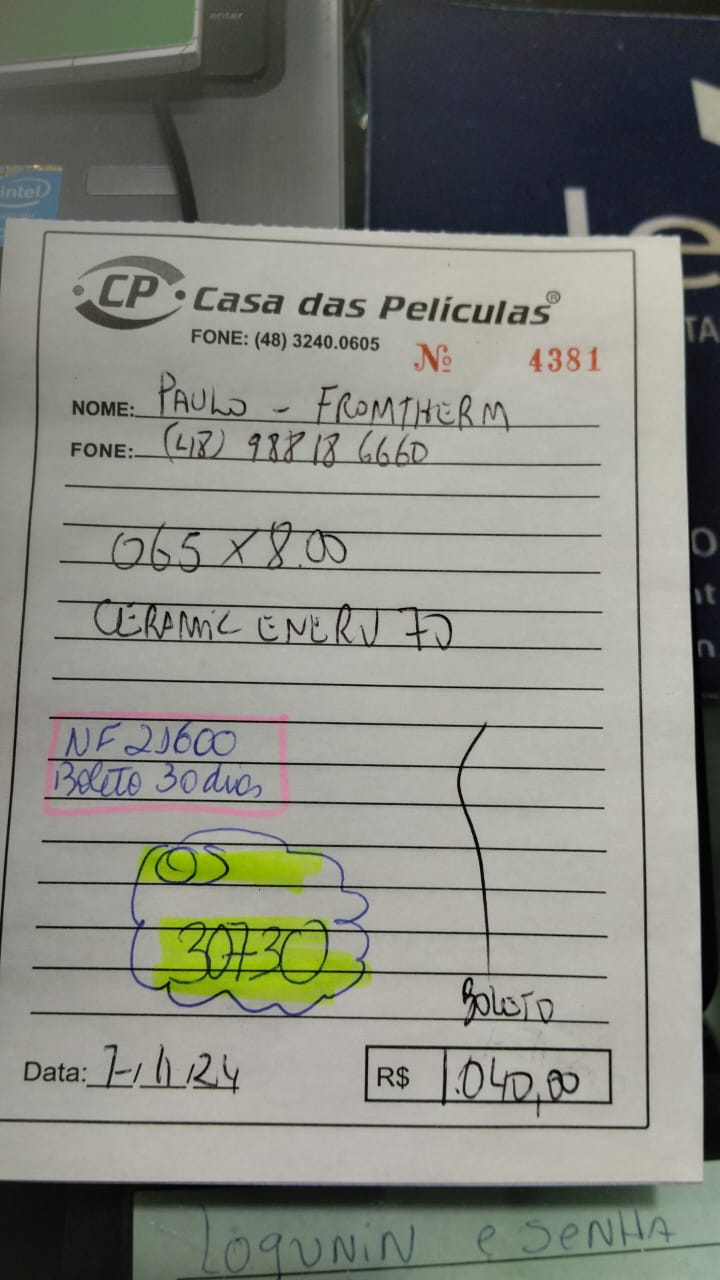 enter
intel
CP Casa das Películas®
FONE: (48) 3240.0605
Nº 4381
NOME: PAULO - FROMTHERM
FONE: (48) 98818 6660
065 X 8.00
CERAMIC ENERJ 70
NF 21600
Boleto 30 dias
OS
30730
BOLETO
Data: 7/11/24
R$ 1.040,00
LOGUNIN e SENHA